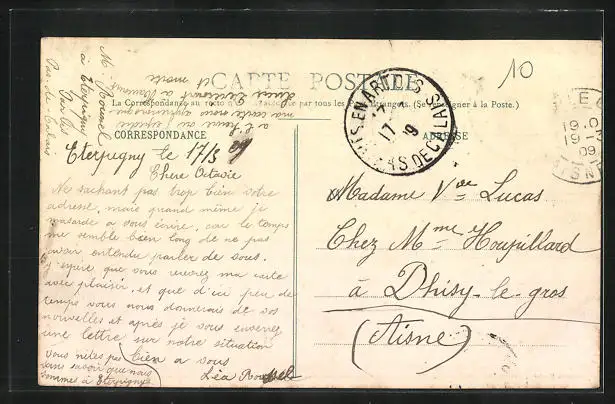 CARTE POSTALE
La Correspondance au recto n'est pas acceptée par tous les Pays Etrangers. (Se renseigner à la Poste.)
CORRESPONDANCE
ADRESSE
10
M. Roussel
à Eterpigny
Pas-de-Calais
Eterpigny le 17/3 09
Chere Octavie
Ne sachant pas trop bien votre
adresse, mais quand même je
hasarde a vous écrire, car le temps
me semble bien long de ne pas
avoir entendu parler de vous.
J'espère que vous recevrez ma carte
avec plaisir, et que d'ici peu de
temps vous nous donnerais de vos
nouvelles et après je vous enverrez
une lettre sur notre situation
Vous n'êtes pas bien a vous
sans savoir que nous
sommes à Eterpigny
Léa Roussel
Madame Vve Lucas
Chez Mme Houpillard
à Dhisy-le-gros
(Aisne)
PAS DE CALAIS
17